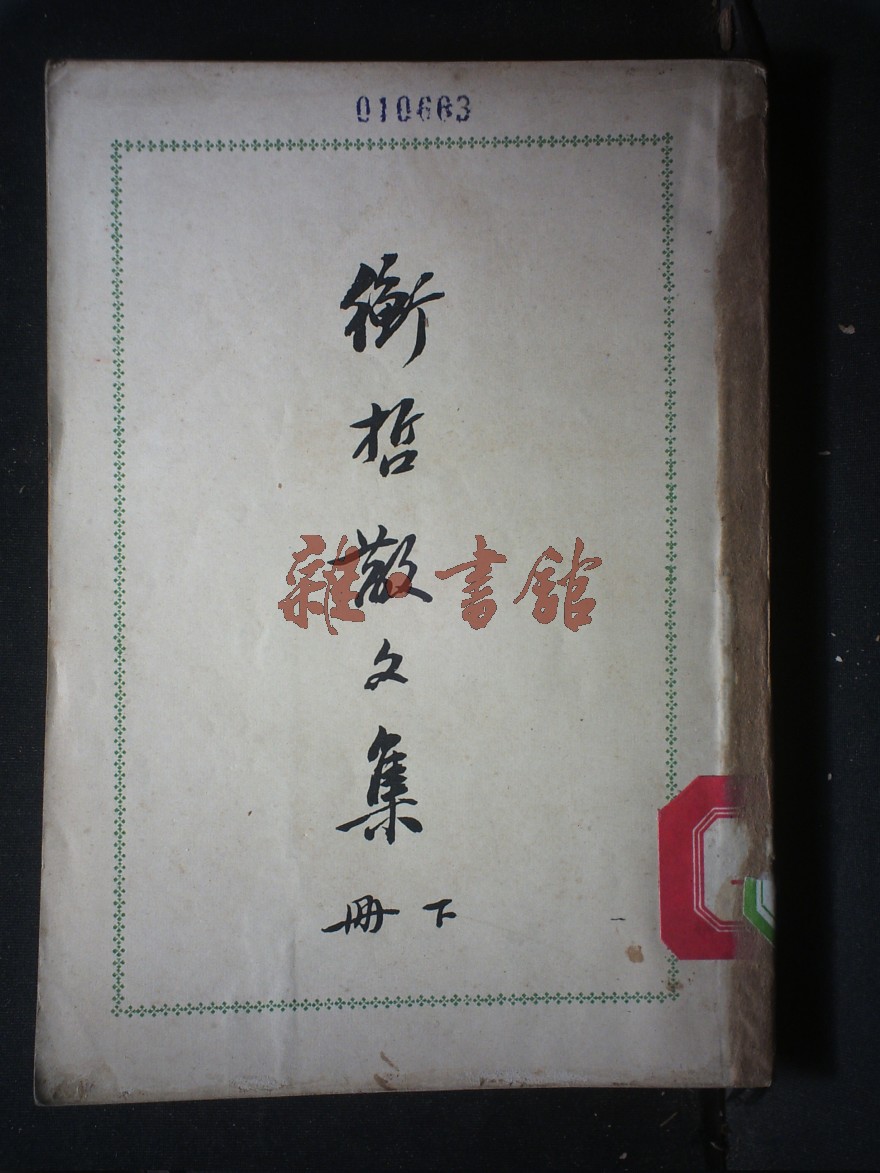 010663
衡哲散文集
下冊
雜·書館